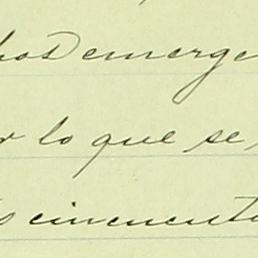 hos emerge
r lo que se
s cincuenta